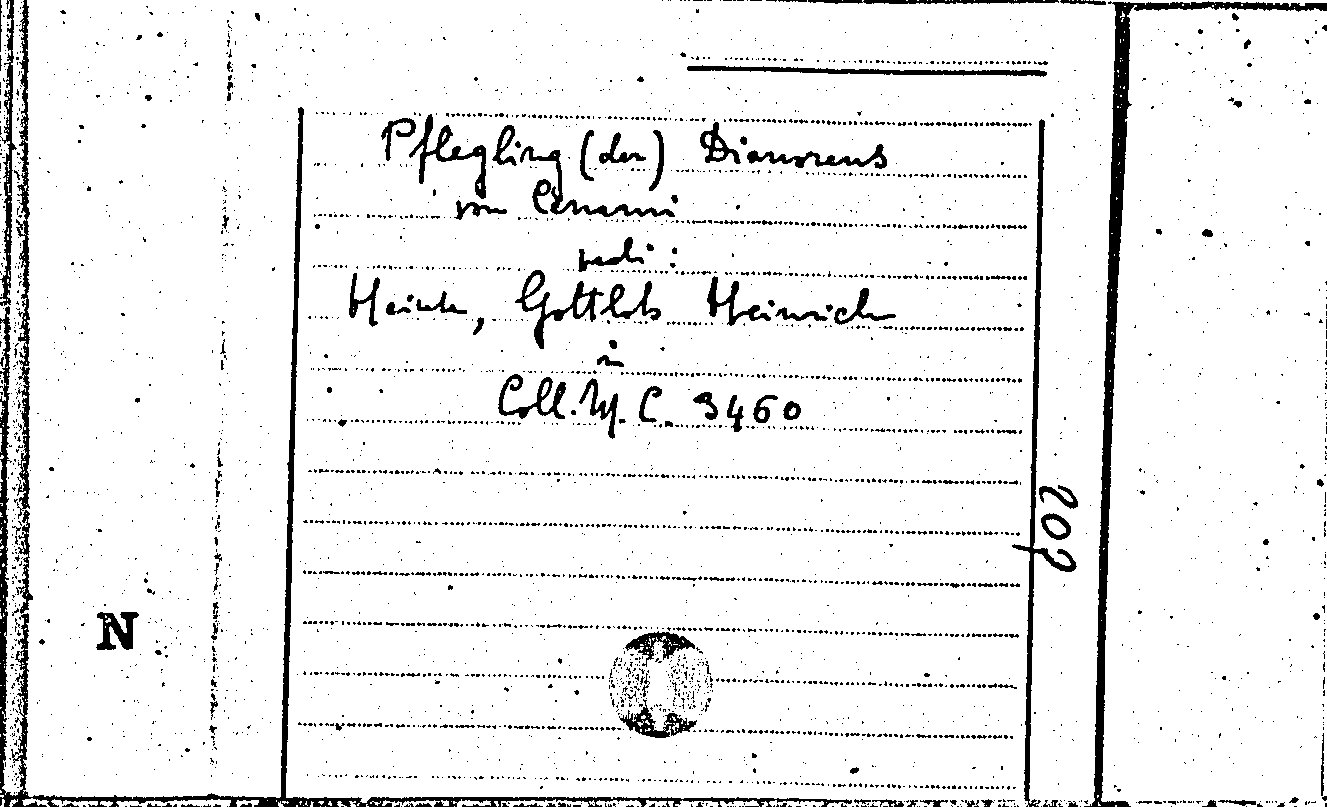 Pflegling (der) Dianorens
von Cenami
vedi:
Heinke, Gottlob Heinrich
in
Coll. U. C. 3460
207
N